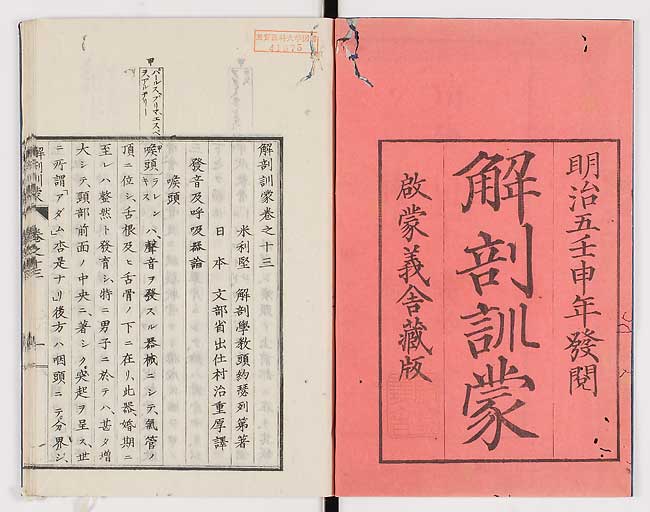 明治五壬申年發閲
解剖訓蒙
啟蒙義舎藏版
解剖訓蒙卷之十三
米利堅 解剖學教頭約瑟列第著
日本 文部省出仕村治重厚譯
發音及呼吸器論
喉頭
喉頭ラレンキスハ、聲音ヲ發スル器械ニシテ、氣管ノ
頂ニ位シ、舌根及ヒ舌骨ノ下ニ在リ、此器婚期ニ
至レハ整然ト發育シ、特ニ男子ニ於テハ甚タ増
大シテ、頸部前面ノ中央ニ、著シク突起ヲ呈ス、世
ニ所謂「アダム」杏是ナリ、後方ハ咽頭ニテ分界シ、
甲
パールス、プリマ、エスペ
ヲ、アルチリー
解剖訓蒙
卷之十三
一